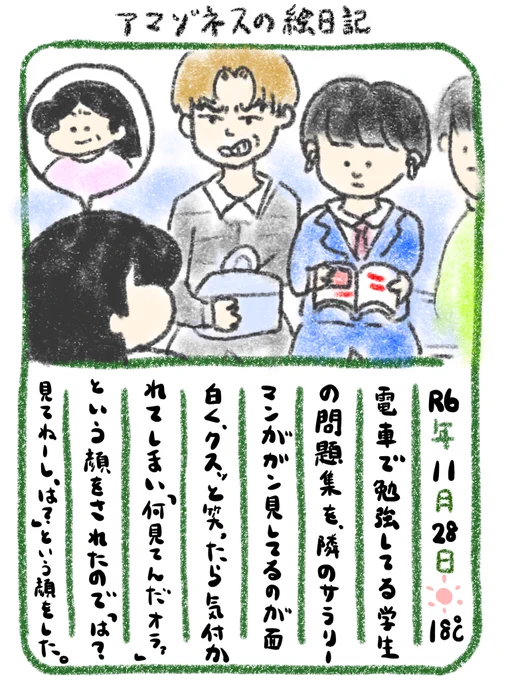 アマゾネスの絵日記
R6年11月28日 18℃
電車で勉強してる学生
の問題集を、隣のサラリー
マンがガン見してるのが面
白く、クスッと笑ったら気付か
れてしまい、「何見てんだオラ?」
という顔をされたので「は?
見てねーし。は?」という顔をした。